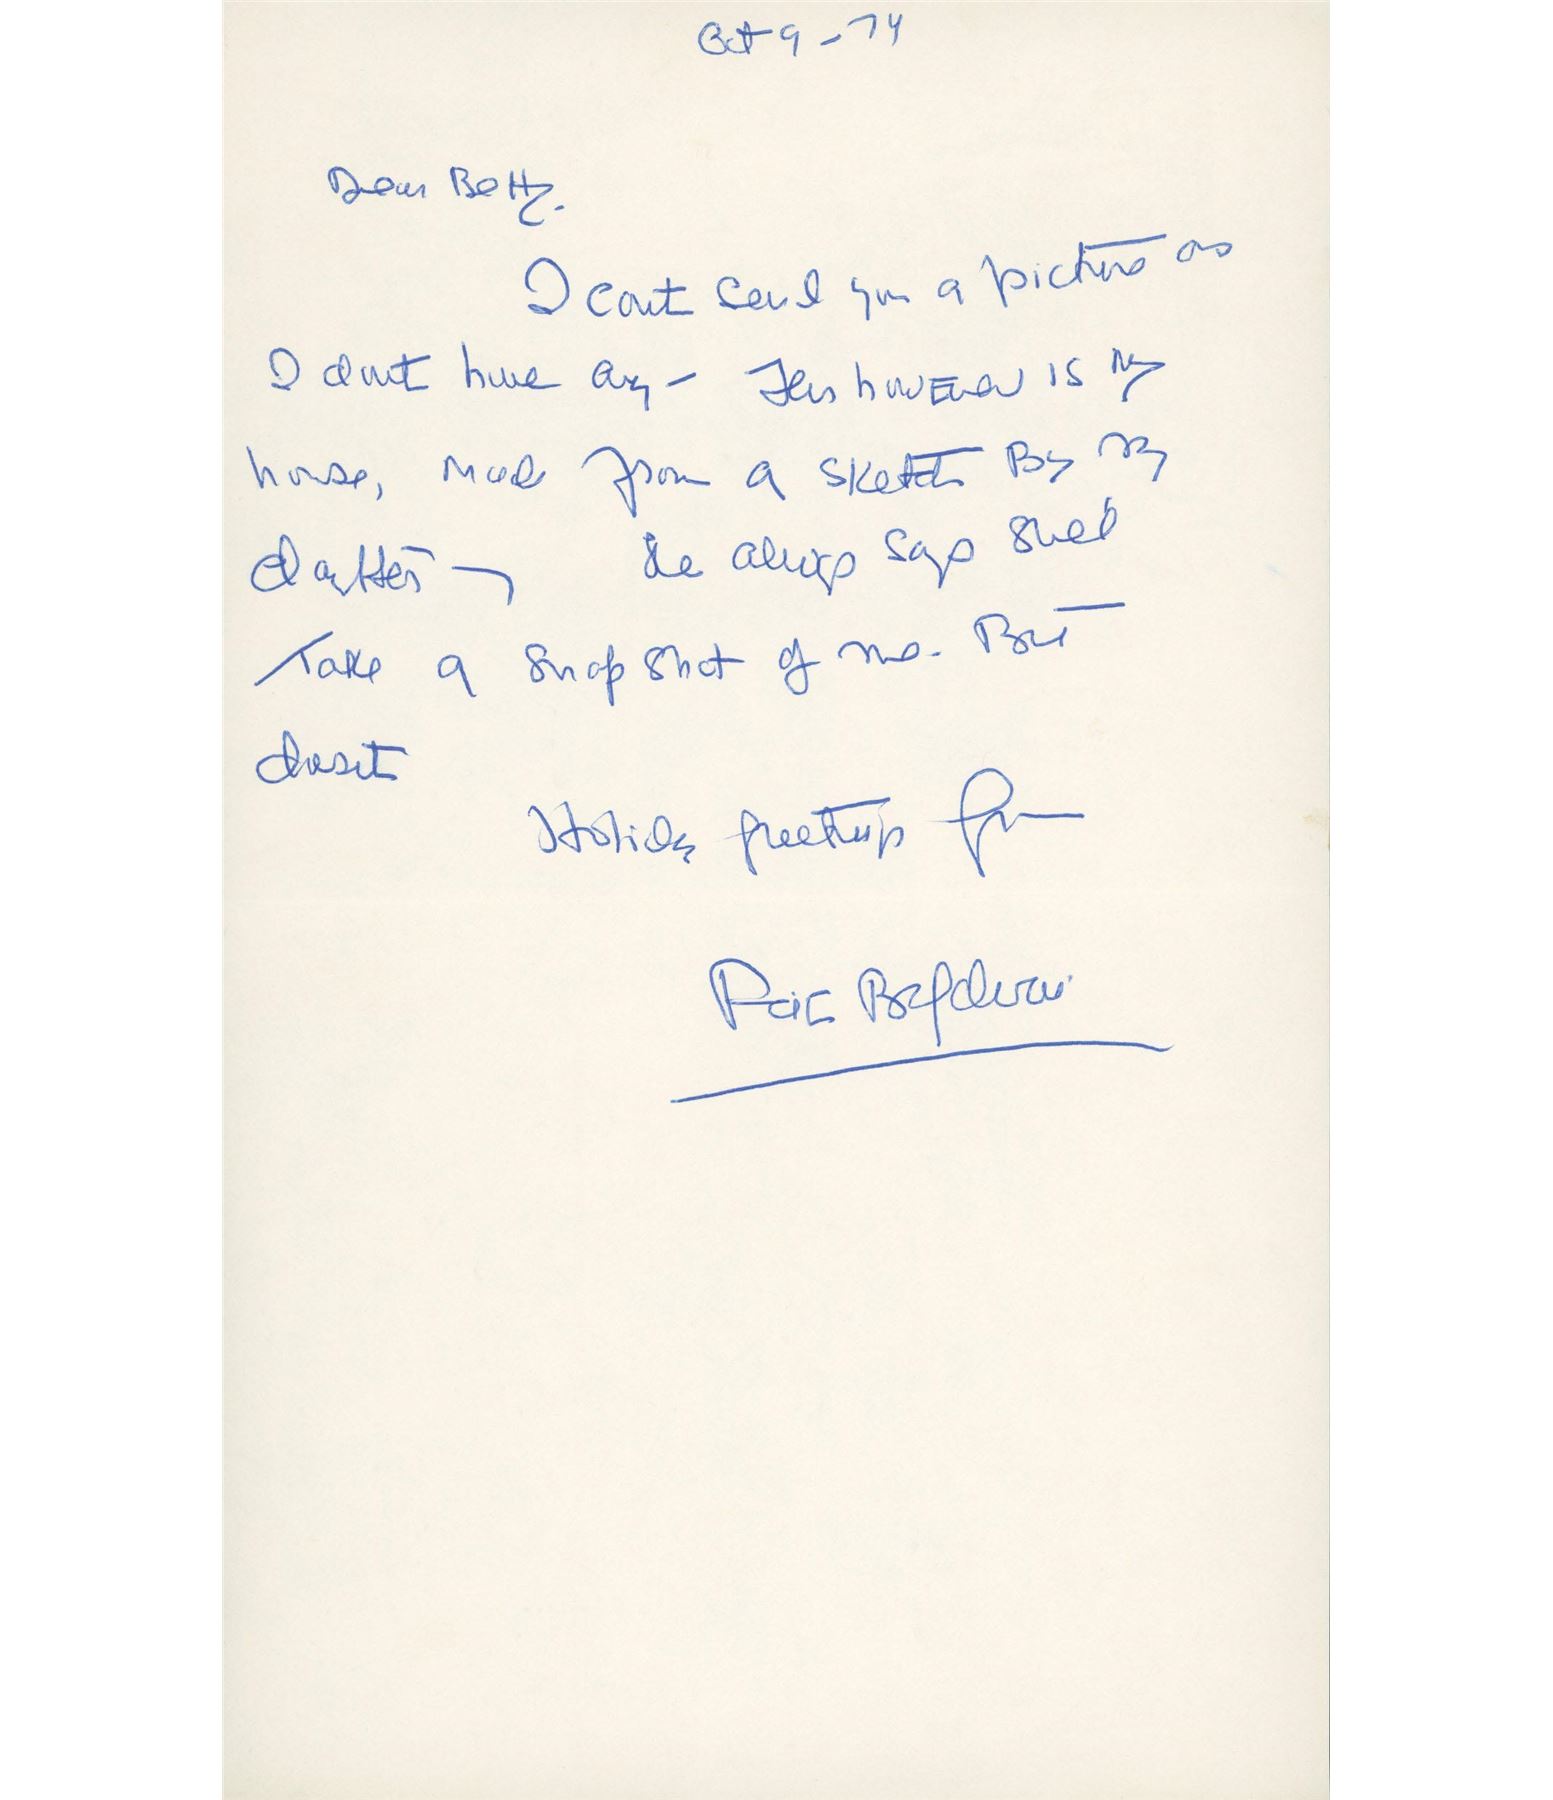 Oct 9 - 74
Dear Betty.
I cant send you a picture as
I dont have any - This however is my
house, made from a sketch By my
daughter - She always says she'll
Take a Snap Shot of me - But
doesnt
Holiday greetings from